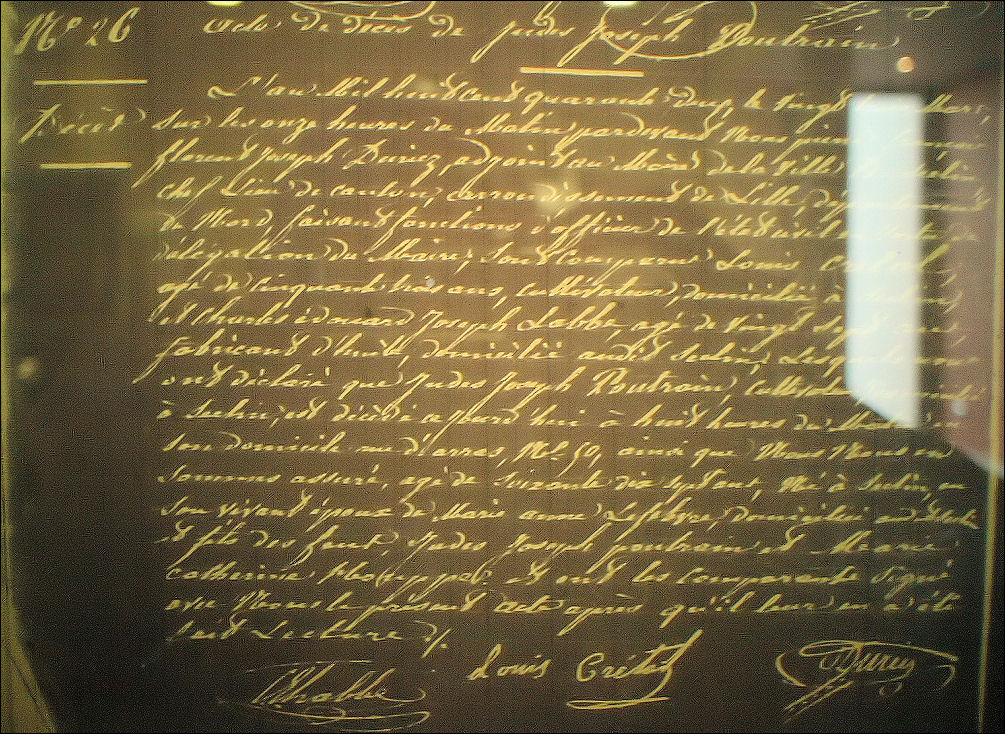 N° 26
Acte de décès de Judes Joseph Poutrain
Décès
L'an Mil huit cent quarante deux, le vingt Mars,
sur les onze heures du Matin, pardevant Nous
florent Joseph Duriez, adjoint au Maire de la Ville de Seclin
chef Lieu de canton, arrondissement de Lille, département
du Nord, faisant fonctions d'officier de l'état civil
délégation du Maire, sont comparus Louis Crétal,
agé de cinquante trois ans, cultivateur, domicilié à Seclin,
et Charles édouard Joseph Labbe, agé de vingt sept ans,
fabricant d'huile, domicilié audit Seclin, Lesquels nous
ont déclaré que Judes Joseph Poutrain, cultivateur, domicilié
à Seclin, est décédé ce jourd'hui à huit heures du Matin en
son domicile rue d'arras, N° 50, ainsi que Nous Nous en
sommes assuré, agé de soixante dix sept ans, Né à Seclin, en
son vivant époux de Marie anne Lefebvre, domiciliée aud Seclin
et fils des feus, Judes Joseph poutrain et Marie
catherine et ont les comparants signé
avec Nous le présent acte après qu'il leur en a été
fait Lecture
Ch Labbe
Louis Crétal
Duriez